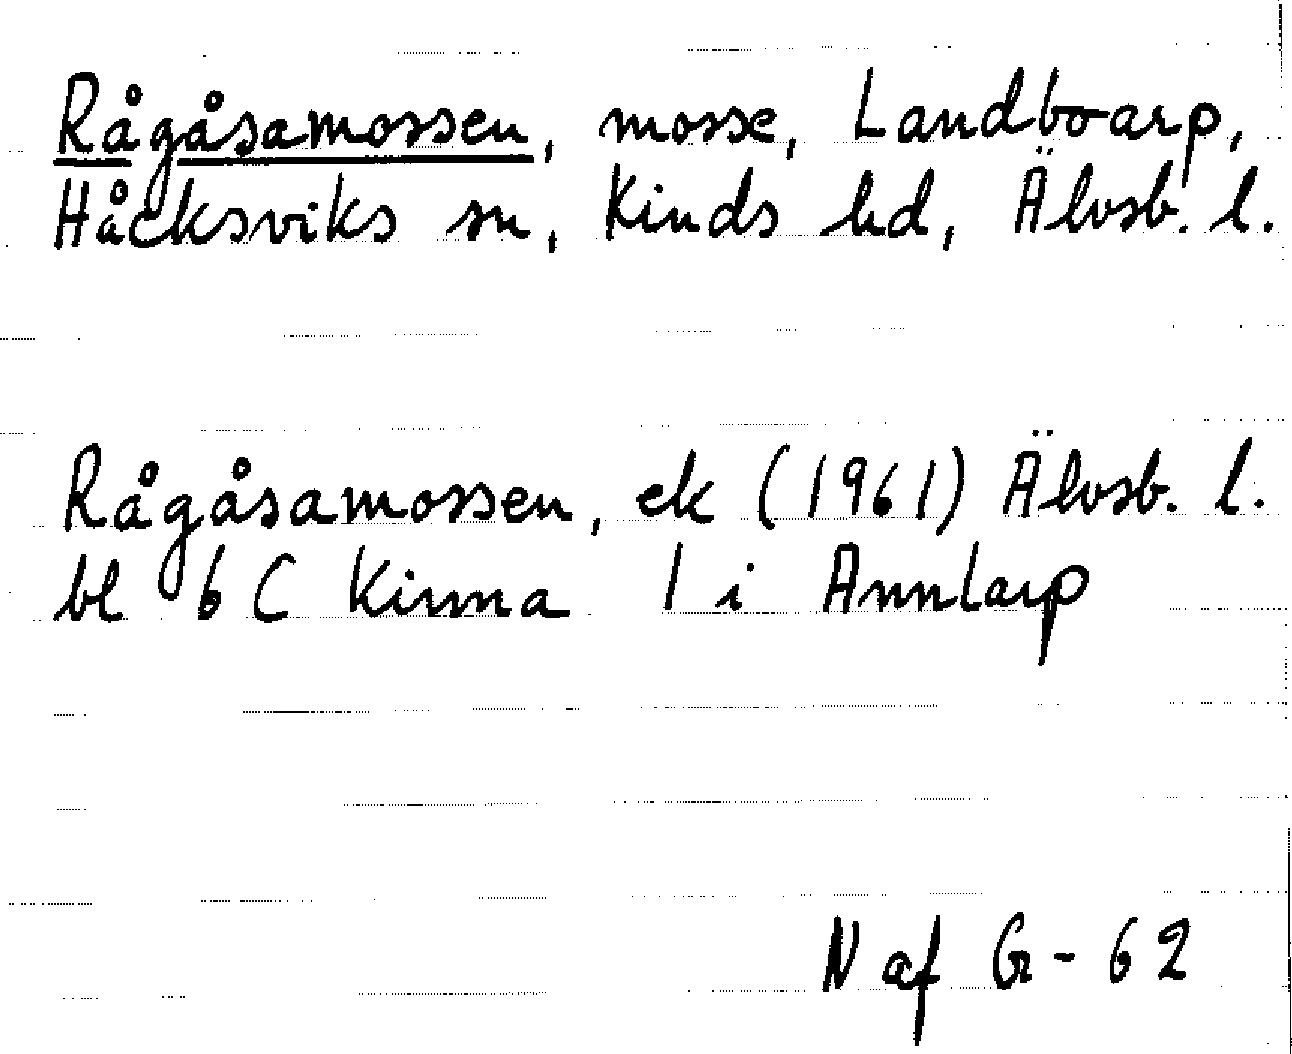 Rågåsamossen, mosse, Landboarp,
Håcksviks sn, Kinds hd, Älvsb. l.
Rågåsamossen, ek (1961) Älvsb. l.
bl 6 C Kinna l i Annlarp
N af G-62